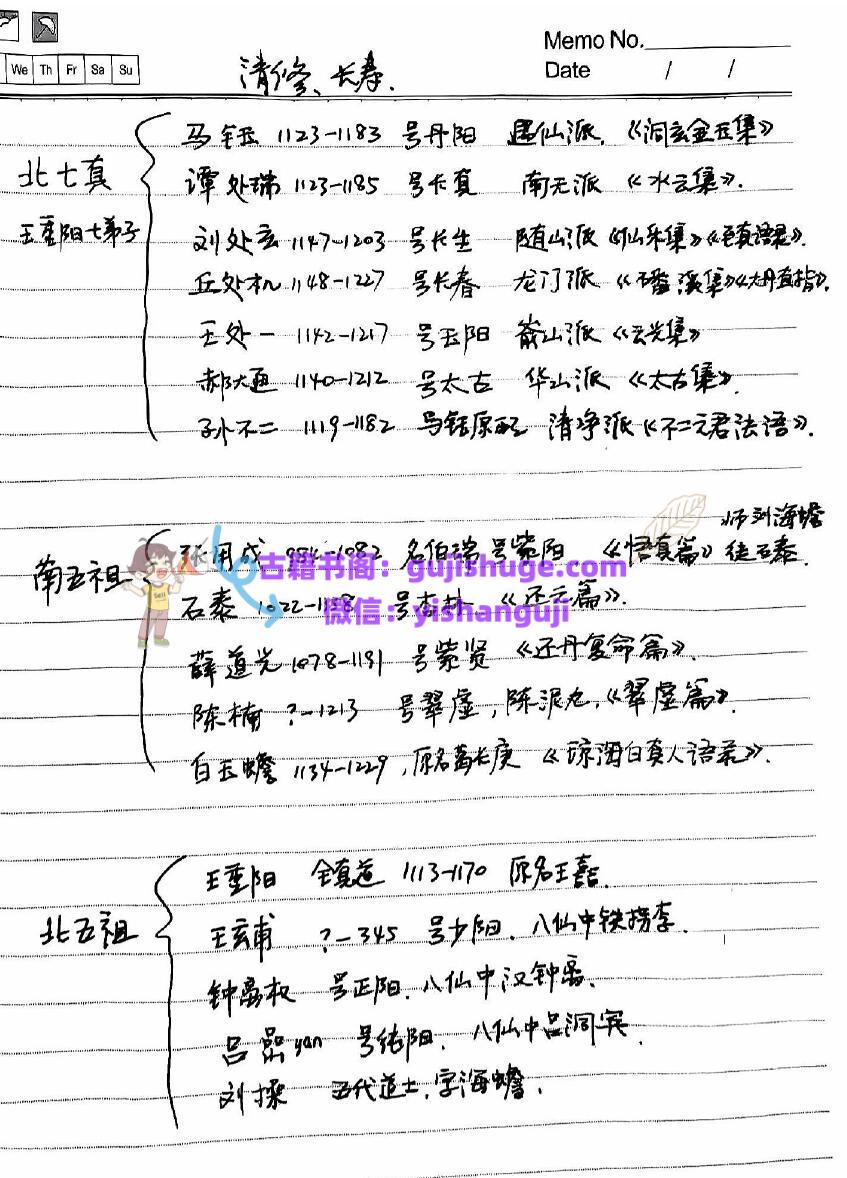 Memo No.
We Th Fr Sa Su
Date / /
清修、长寿.
北七真
王重阳七弟子
马钰 1123-1183 号丹阳 遇仙派. 《洞玄金玉集》
谭处瑞 1123-1185 号长真 南无派 《水云集》.
刘处玄 1147-1203 号长生 随山派《仙乐集》《至真语录》.
丘处机 1148-1227 号长春 龙门派 《磻溪集》《大丹直指》.
王处一 1142-1217 号玉阳 嵛山派 《云光集》
郝大通 1140-1212 号太古 华山派 《太古集》.
孙不二 1119-1182 马钰原配 清净派《不二元君法语》.
师刘海蟾
南五祖
张用成 984-1082 名伯端 号紫阳 《悟真篇》 徒石泰.
古籍书阁：gujishuge.com
石泰 1022-1158 号杏林 《还元篇》.
微信：yishanguji
薛道光 1078-1191 号紫贤 《还丹复命篇》.
陈楠 ?-1213 号翠虚, 陈泥丸,《翠虚篇》.
白玉蟾 1134-1229, 原名葛长庚 《琼海白真人语录》.
北五祖
王重阳 全真道 1113-1170 原名王嚞.
王玄甫 ?-345 号少阳. 八仙中铁拐李.
钟离权 号正阳. 八仙中汉钟离.
吕喦yan 号纯阳. 八仙中吕洞宾.
刘操 五代道士. 字海蟾.